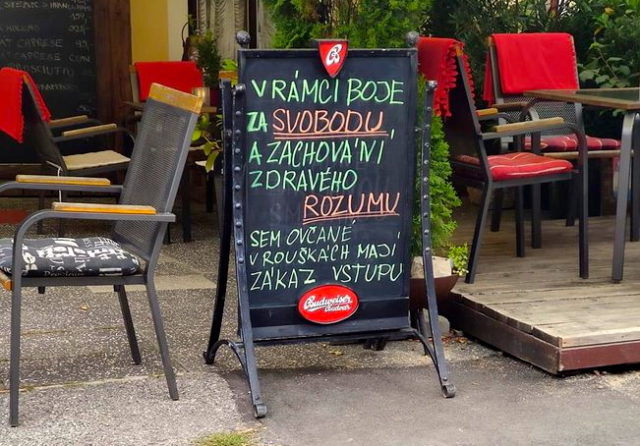 STEAK
CAPRESE
CAPRESE
B
V RÁMCI BOJE
ZA SVOBODU
A ZACHOVÁNÍ
ZDRAVÉHO
ROZUMU
SEM OVČANÉ
V ROUŠKÁCH MAJÍ
ZÁKAZ VSTUPU
Budweiser
Budvar